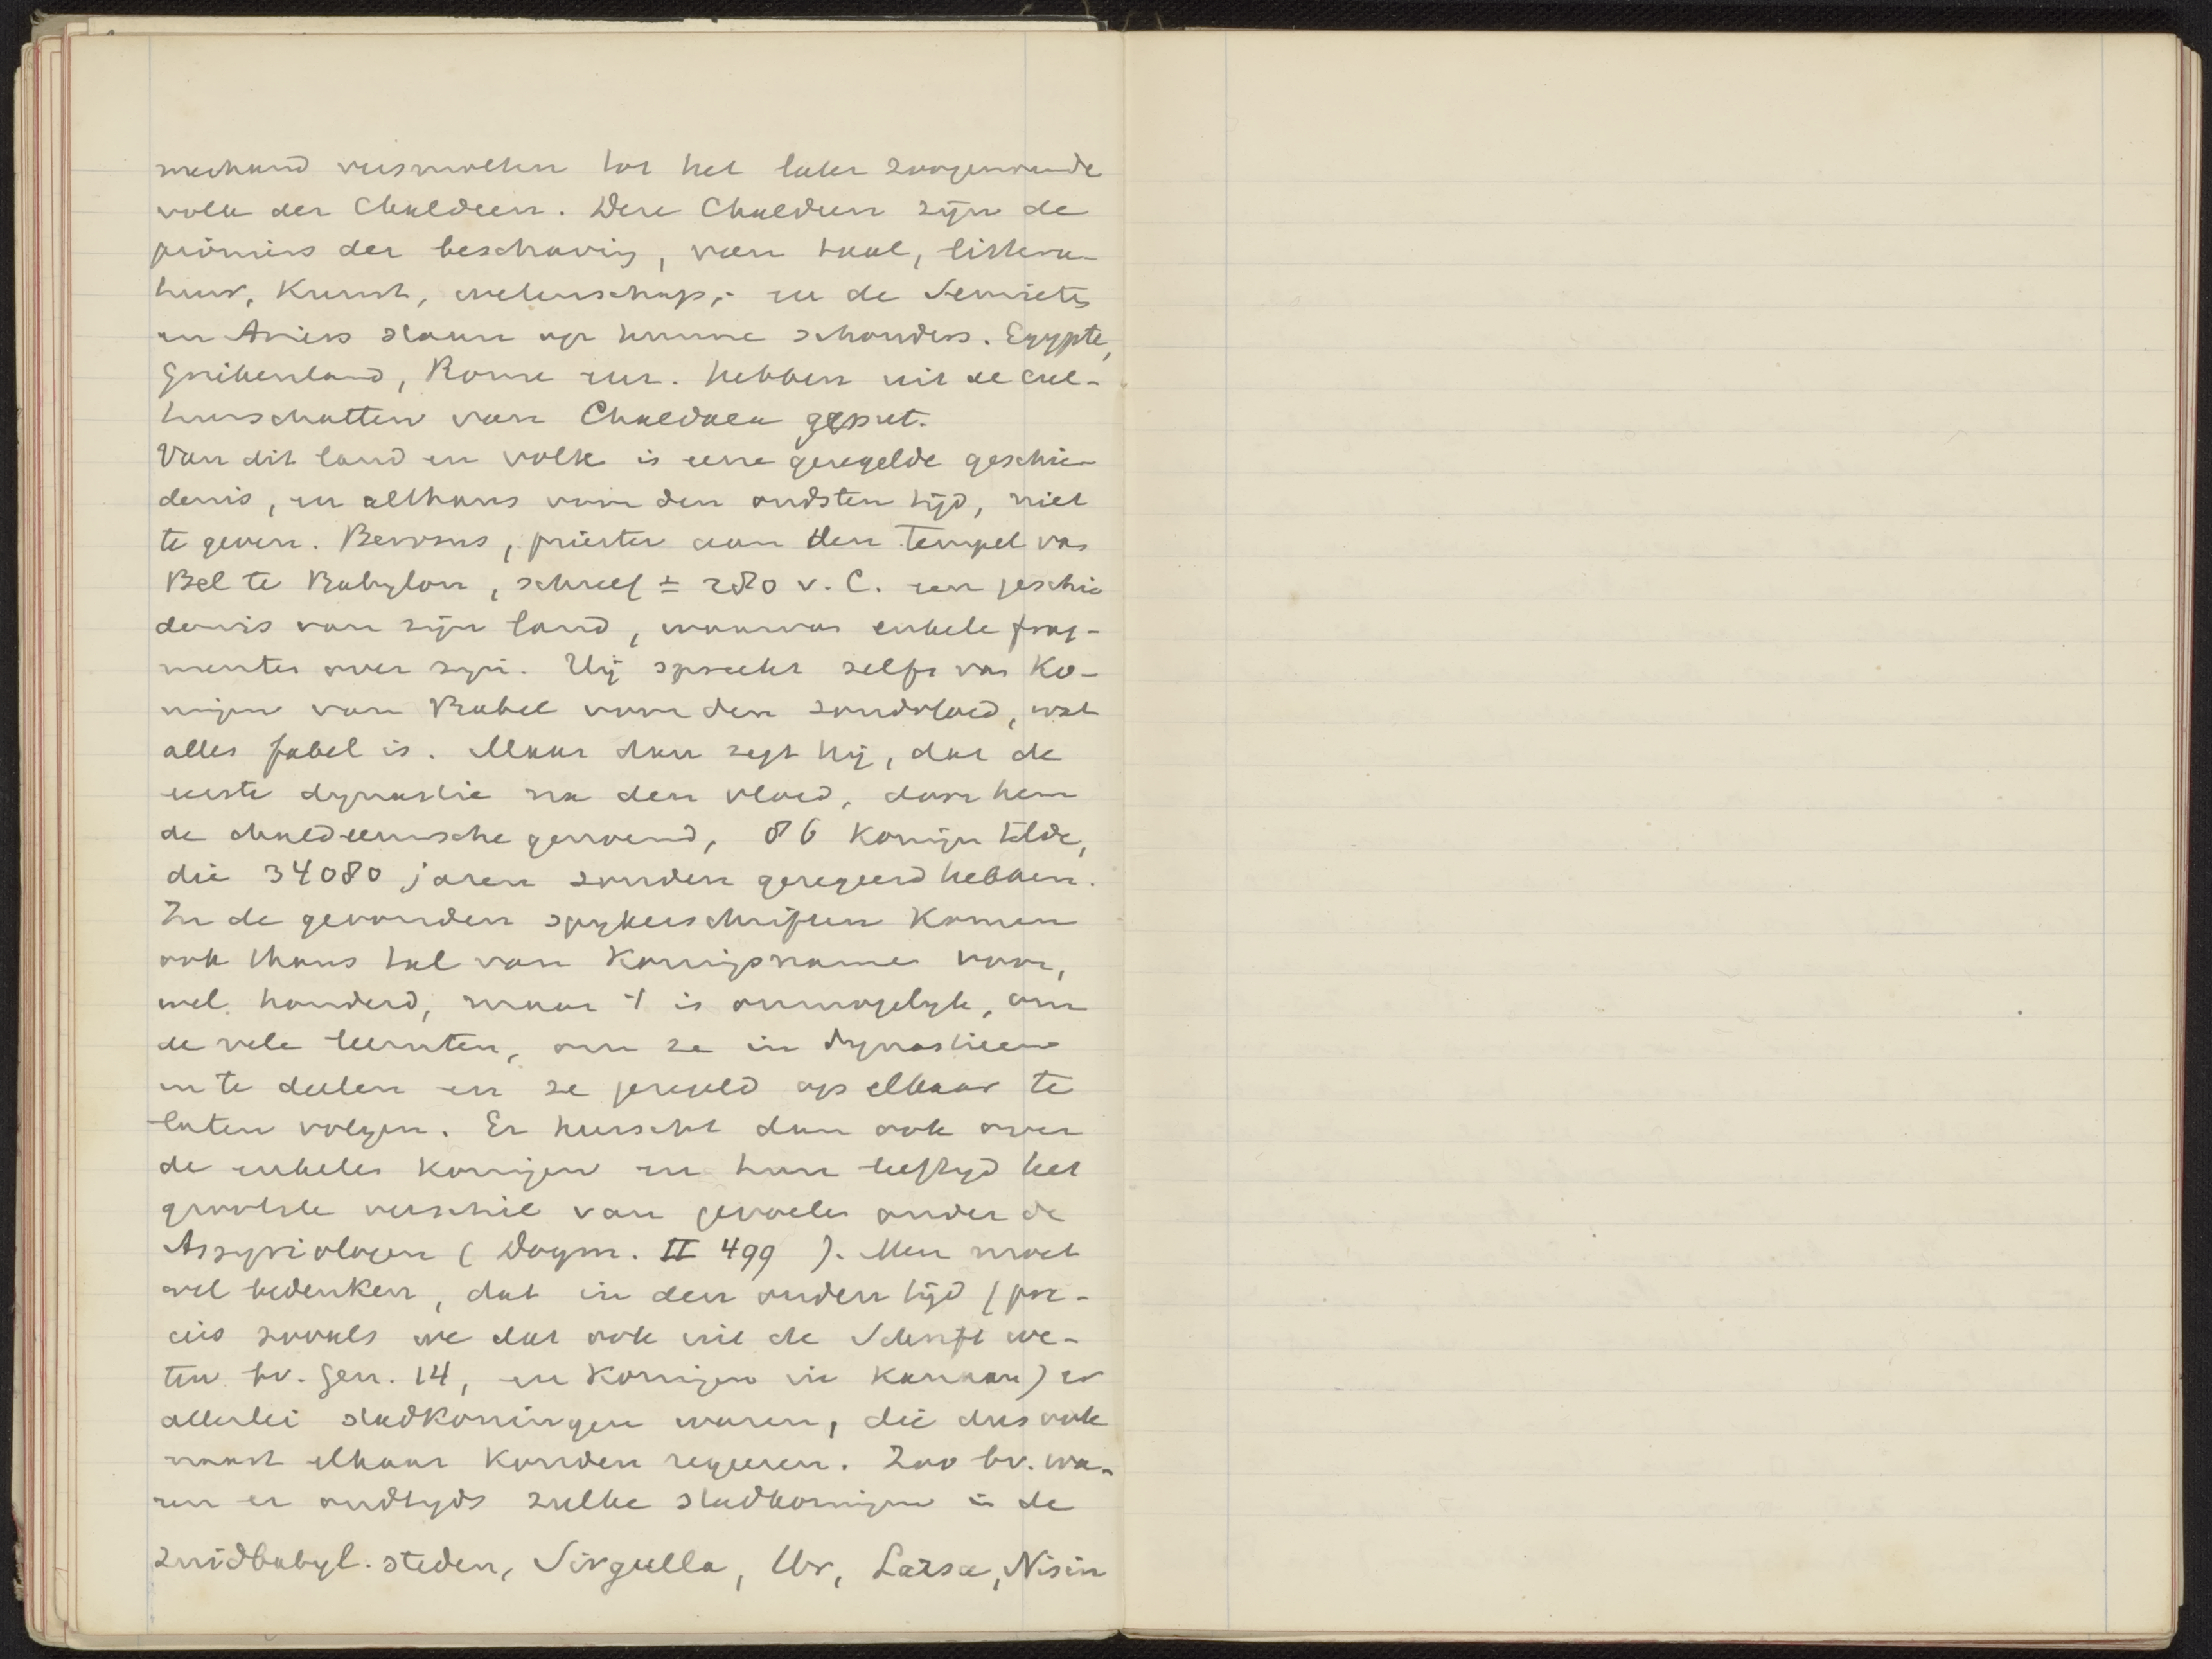 mekaand versmolten tot het later zoogenaamde
volk der Chaldeen. Deze Chaldeen zijn de
pioniers der beschaving, van taal, littera-
tuur, Kunst, wetenschap,- en de Semieten
en Ariers staan op hunne schouders. Egypte,
Griekenland, Rome enz. hebben uit de cul-
tuurschatten van Chaldaea geput.
Van dit land en volk is eene geregelde geschie-
denis, en althans van den oudsten tijd, niet
te geven. Berosus, priester aan den Tempel van
Bel te Babylon, schreef ± 280 v. C. een geschie
denis van zijn land, waarvan enkele frag-
menten over zijn. Hij spreekt zelfs van Ko-
ningen van Babel voor den zondvloed, wat
alles fabel is. Maar dan zegt hij, dat de
eerste dynastie na den vloed, door hem
de chaldeeuwsche genoemd, 86 Koningen telde,
die 34080 jaren zouden geregeerd hebben.
In de gevonden spykerschriften Komen
ook thans tal van Koningsnamen voor,
wel honderd, maar 't is onmogelyk, om
de vele leemten, om ze in dynastieen
in te deelen en ze geregeld op elkaar te
laten volgen. Er heerscht dan ook over
de enkele Koningen en hun leeftyd het
grootste verschil van gevoelen onder de
Assyriologen (Dogm. II 499 ). Men moet
wel bedenken, dat in den ouden tijd (pre-
cies zooals we dat ook uit de Schrift we-
ten bv. Gen. 14, en Koningen in Kanaan) er
allerlei stadkoningen waren, die dus ook
naast elkaar Konden regeeren. Zoo bv. wa-
ren er oudtyds zulke stadkoningen in de
zuidbabyl. steden, Sirgulla, Ur, Larsa, Nisin